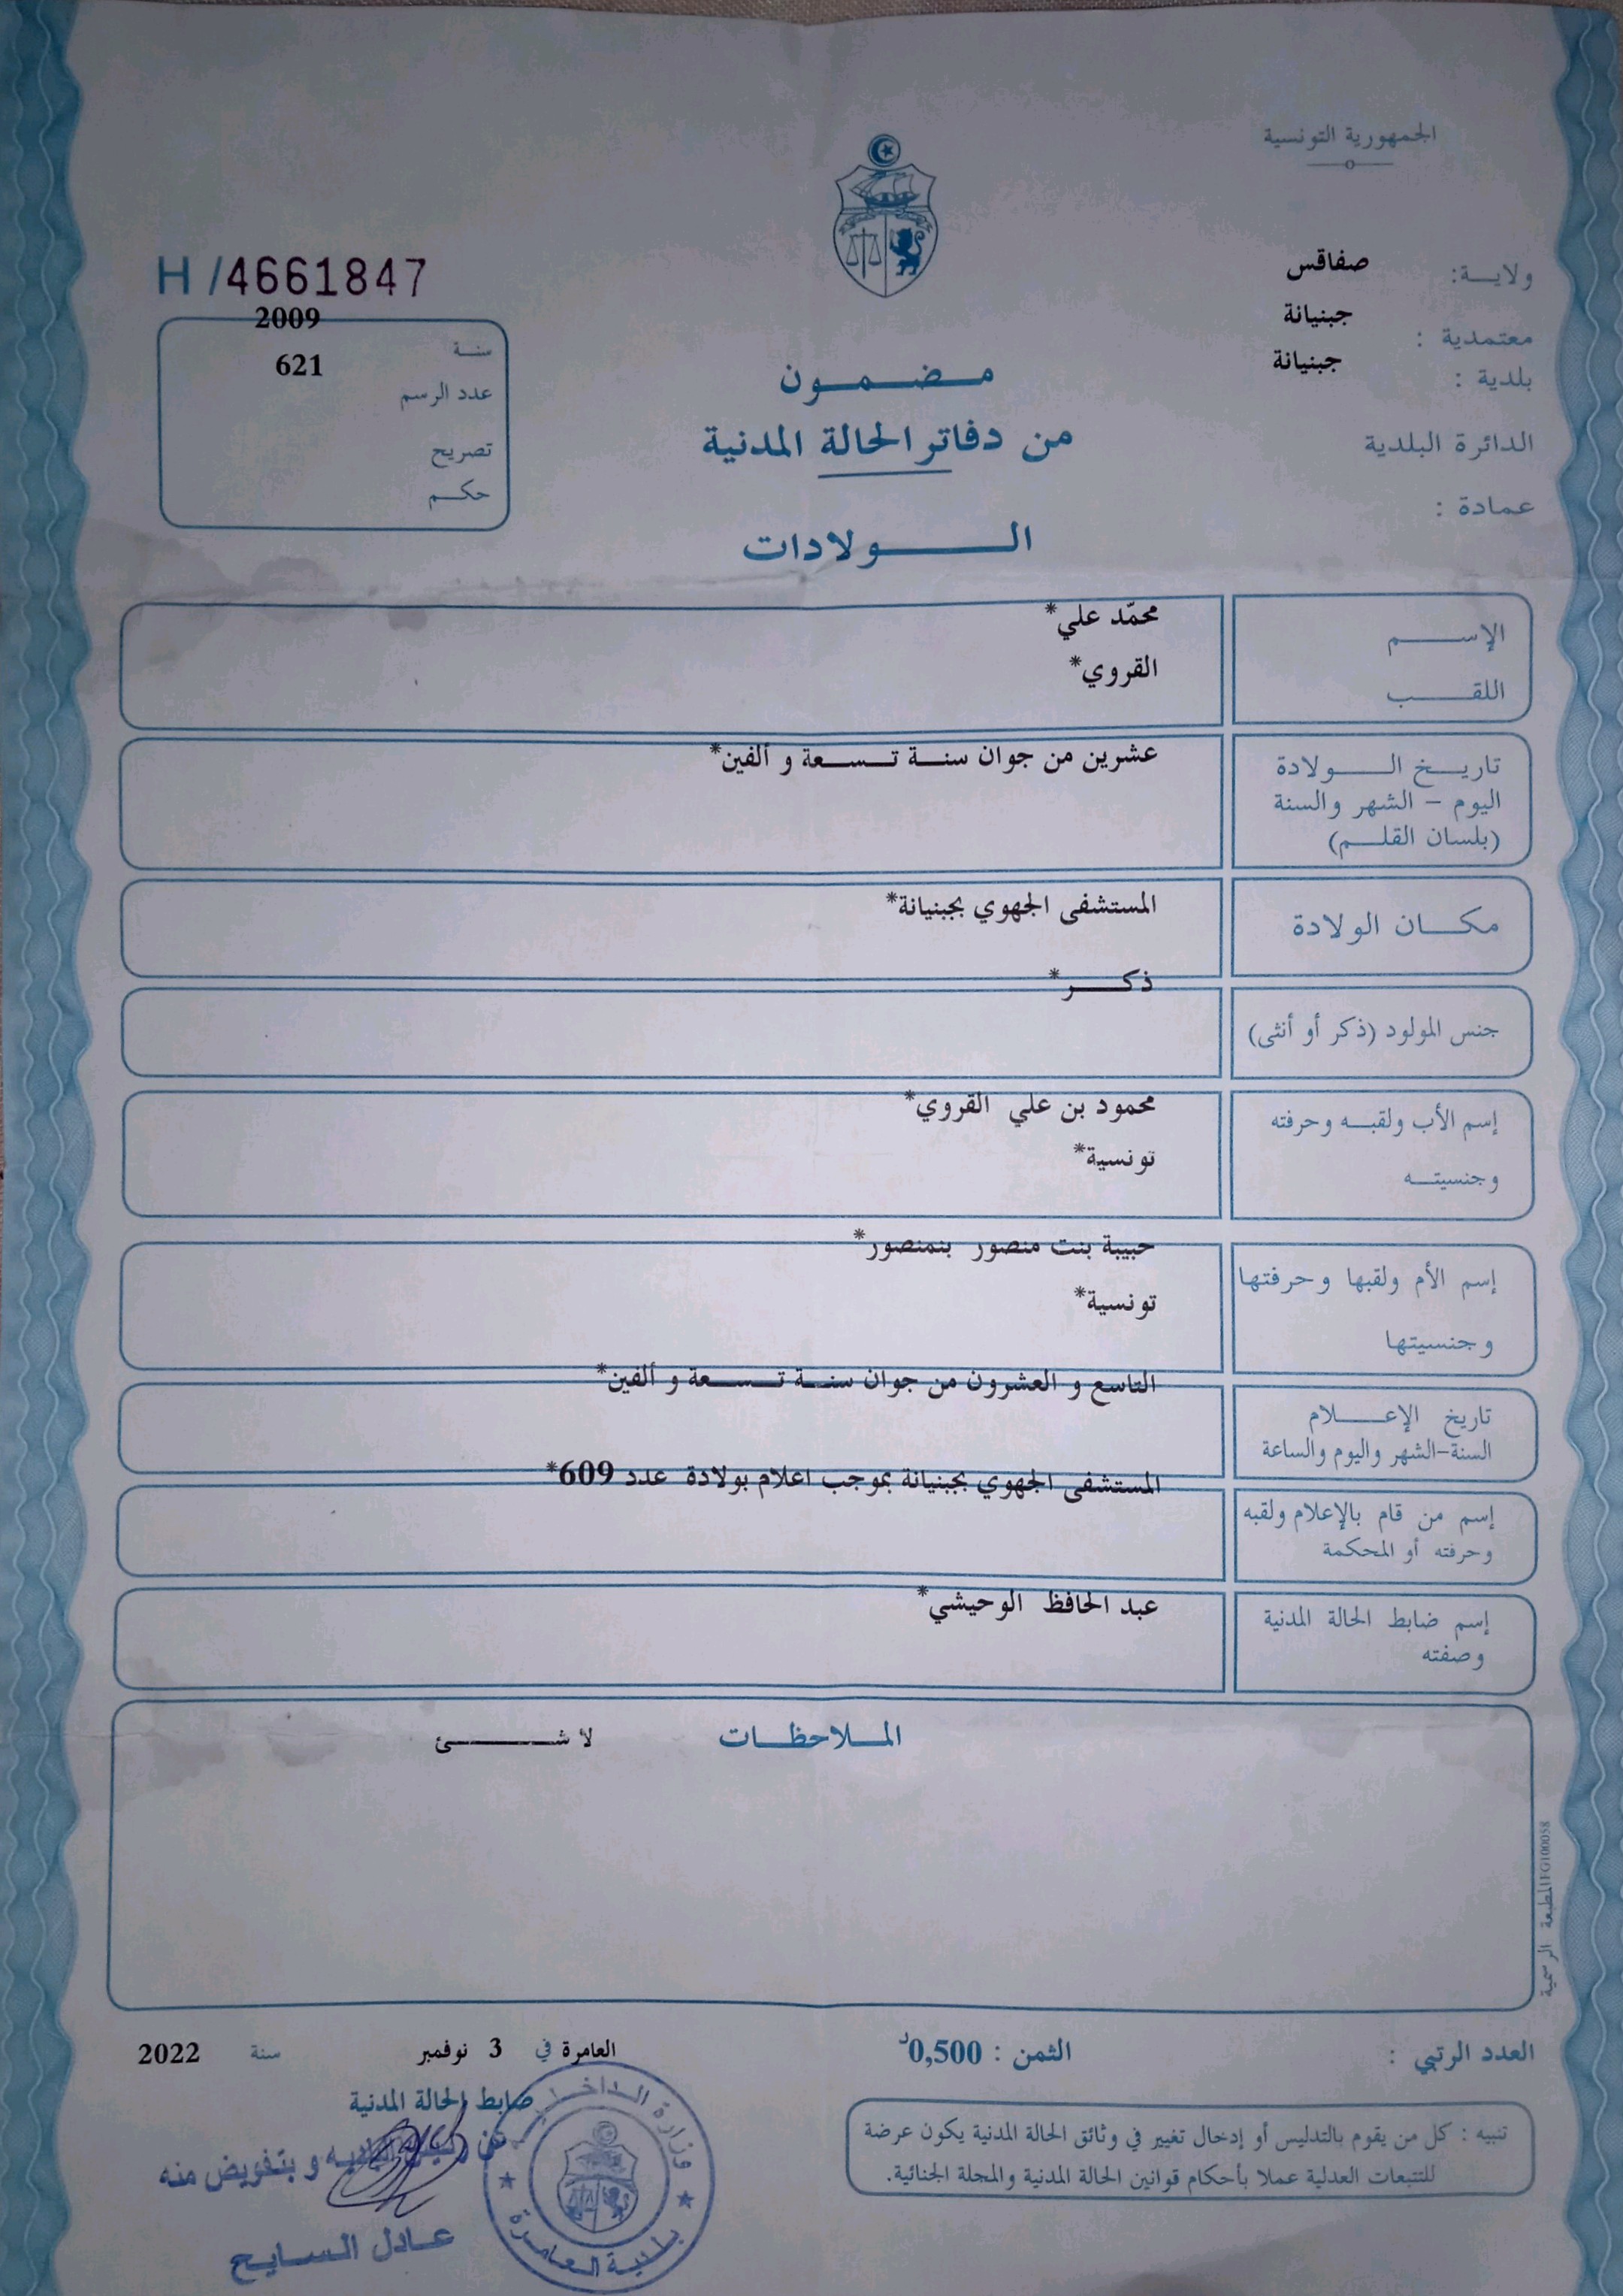 الجمهورية التونسية
ولايــة: صفاقس
معتمدية : جبنيانة
بلدية : جبنيانة
الدائرة البلدية
عمادة :
H /4661847
سنة 2009
عدد الرسم 621
تصريح
حكم
مضمون
من دفاتر الحالة المدنية
الولادات
الإسم محمّد علي*
اللقب القروي*
تاريخ الولادة عشرين من جوان سنة تسعة و ألفين*
اليوم – الشهر والسنة
(بلسان القلم)
مكان الولادة المستشفى الجهوي بجبنيانة*
جنس المولود (ذكر أو أنثى) ذكر*
إسم الأب ولقبه وحرفته محمود بن علي القروي*
وجنسيته تونسية*
إسم الأم ولقبها وحرفتها حبيبة بنت منصور بنمنصور*
وجنسيتها تونسية*
تاريخ الإعلام التاسع و العشرون من جوان سنة تسعة و ألفين*
السنة-الشهر واليوم والساعة
إسم من قام بالإعلام ولقبه المستشفى الجهوي بجبنيانة بموجب اعلام بولادة عدد 609*
وحرفته أو المحكمة
إسم ضابط الحالة المدنية عبد الحافظ الوحيشي*
وصفته
الملاحظات لا شئ
المطبعة الرسمية FG100058
العدد الرتبي :
الثمن : 0,500د
العامرة في 3 نوفمبر سنة 2022
ضابط الحالة المدنية
تنبيه : كل من يقوم بالتدليس أو إدخال تغيير في وثائق الحالة المدنية يكون عرضة
للتتبعات العدلية عملا بأحكام قوانين الحالة المدنية والمجلة الجنائية.
عن رئيس البلدية و بتفويض منه
عادل السايح
وزارة الداخلية
بلدية العامرة